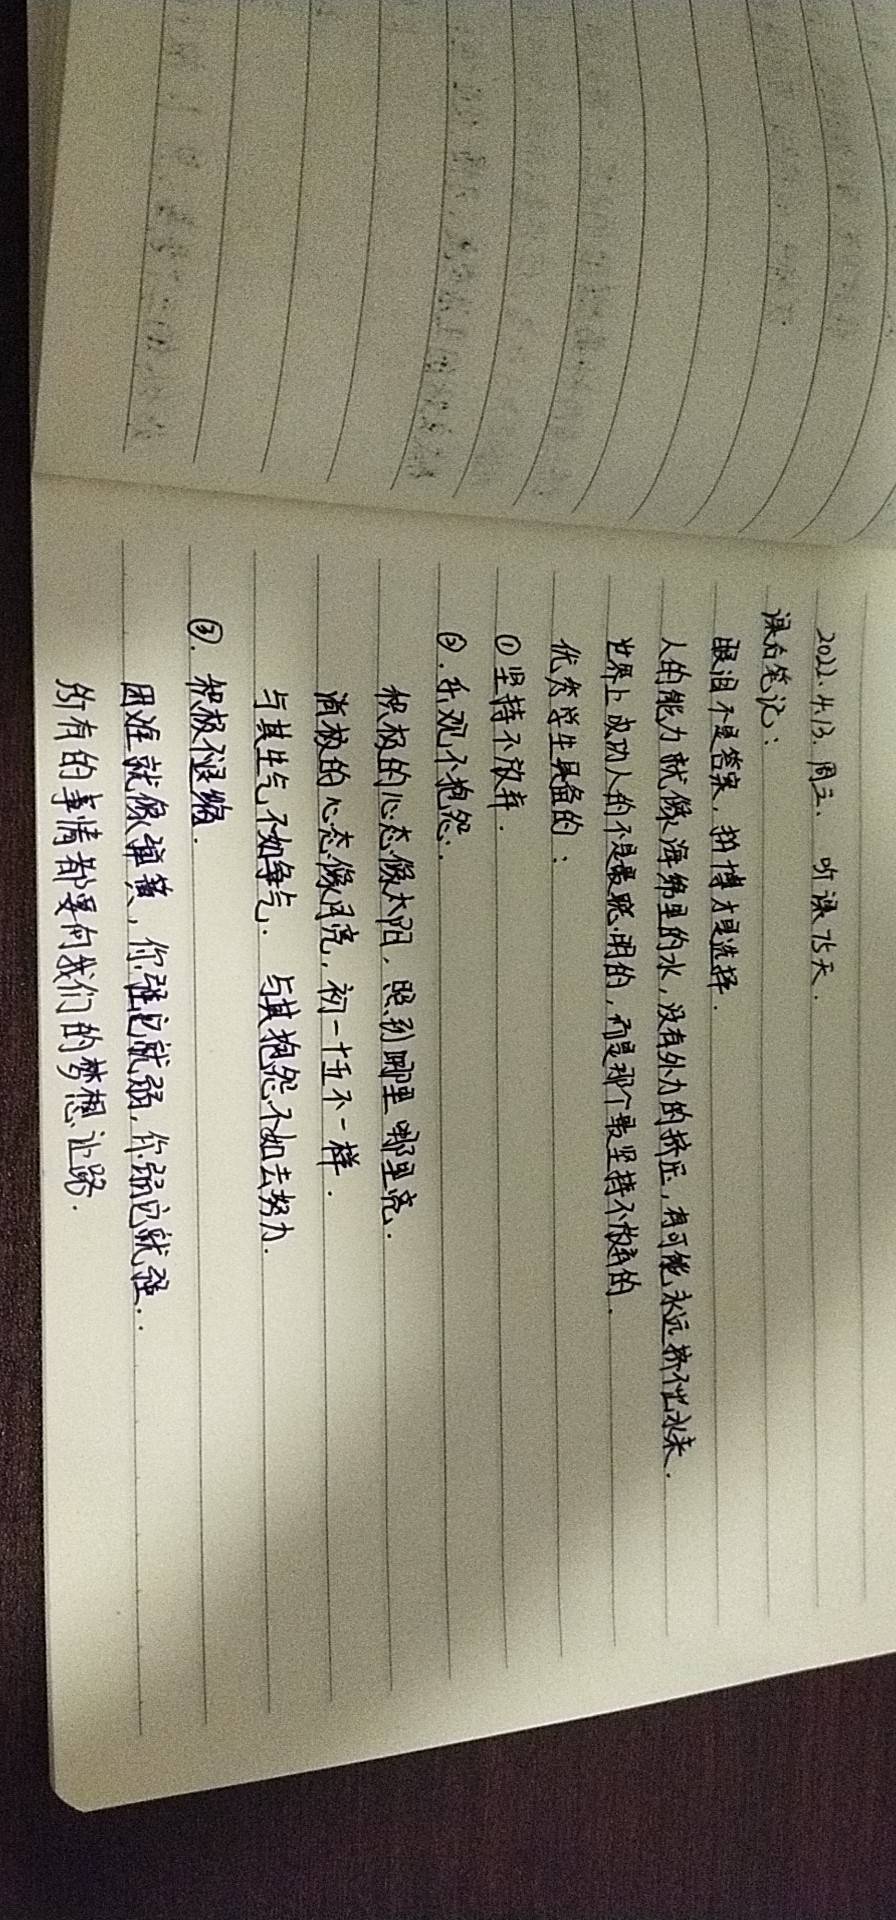 2022.4.13. 周三. 听课75天.
课后笔记:
眼泪不是答案, 拼搏才是选择.
人的能力就像海绵里的水, 没有外力的挤压, 有可能永远挤不出水来.
世界上成功人的不是最聪明的, 而是那个最坚持不放弃的.
优秀学生具备的:
①坚持不放弃.
②.乐观不抱怨.
积极的心态像太阳, 照到哪里哪里亮.
消极的心态像月亮, 初一十五不一样.
与其生气不如争气. 与其抱怨不如去努力.
③. 积极不退缩.
困难就像弹簧, 你强它就弱, 你弱它就强..
所有的事情都要向我们的梦想让路.